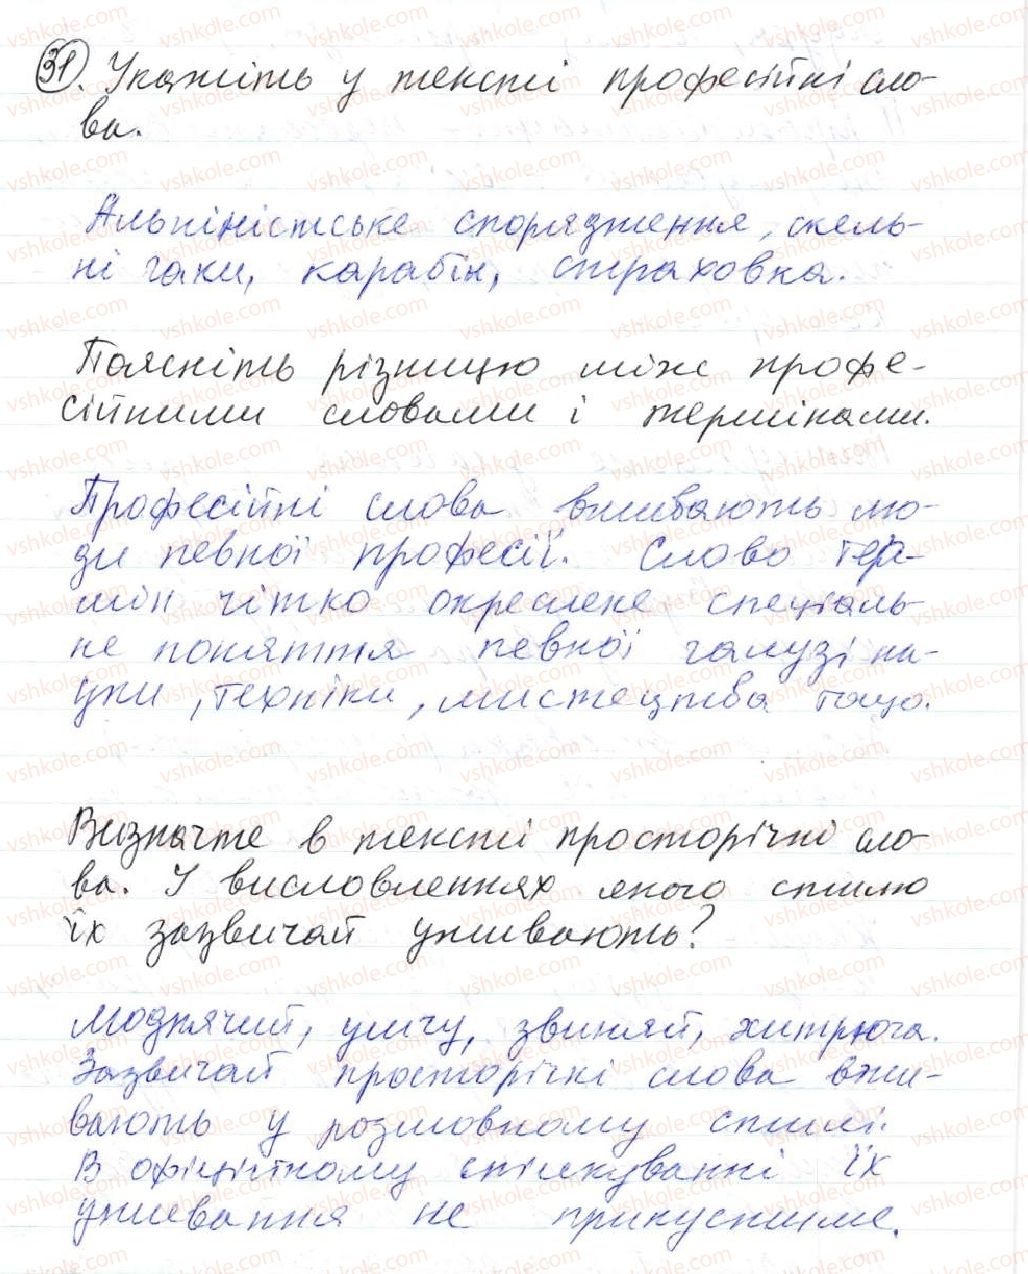 31. Укажіть у тексті професійні сло-
ва.
Альпіністське спорядження, скель-
ні гаки, карабін, страховка.
Поясніть різницю між профе-
сійними словами і термінами.
Професійні слова вживають лю-
ди певної професії. Слово тер-
мін чітко окреслене спеціаль-
не поняття певної галузі на-
уки, техніки, мистецтва тощо.
Визначте в тексті просторічні сло-
ва. У висловленнях якого стилю
їх зазвичай уживають?
Моднячий, улічу, звиняй, хитрюга.
Зазвичай просторічні слова вжи-
вають у розмовному стилі.
В офіційному спілкуванні їх
уживання не припустиме.